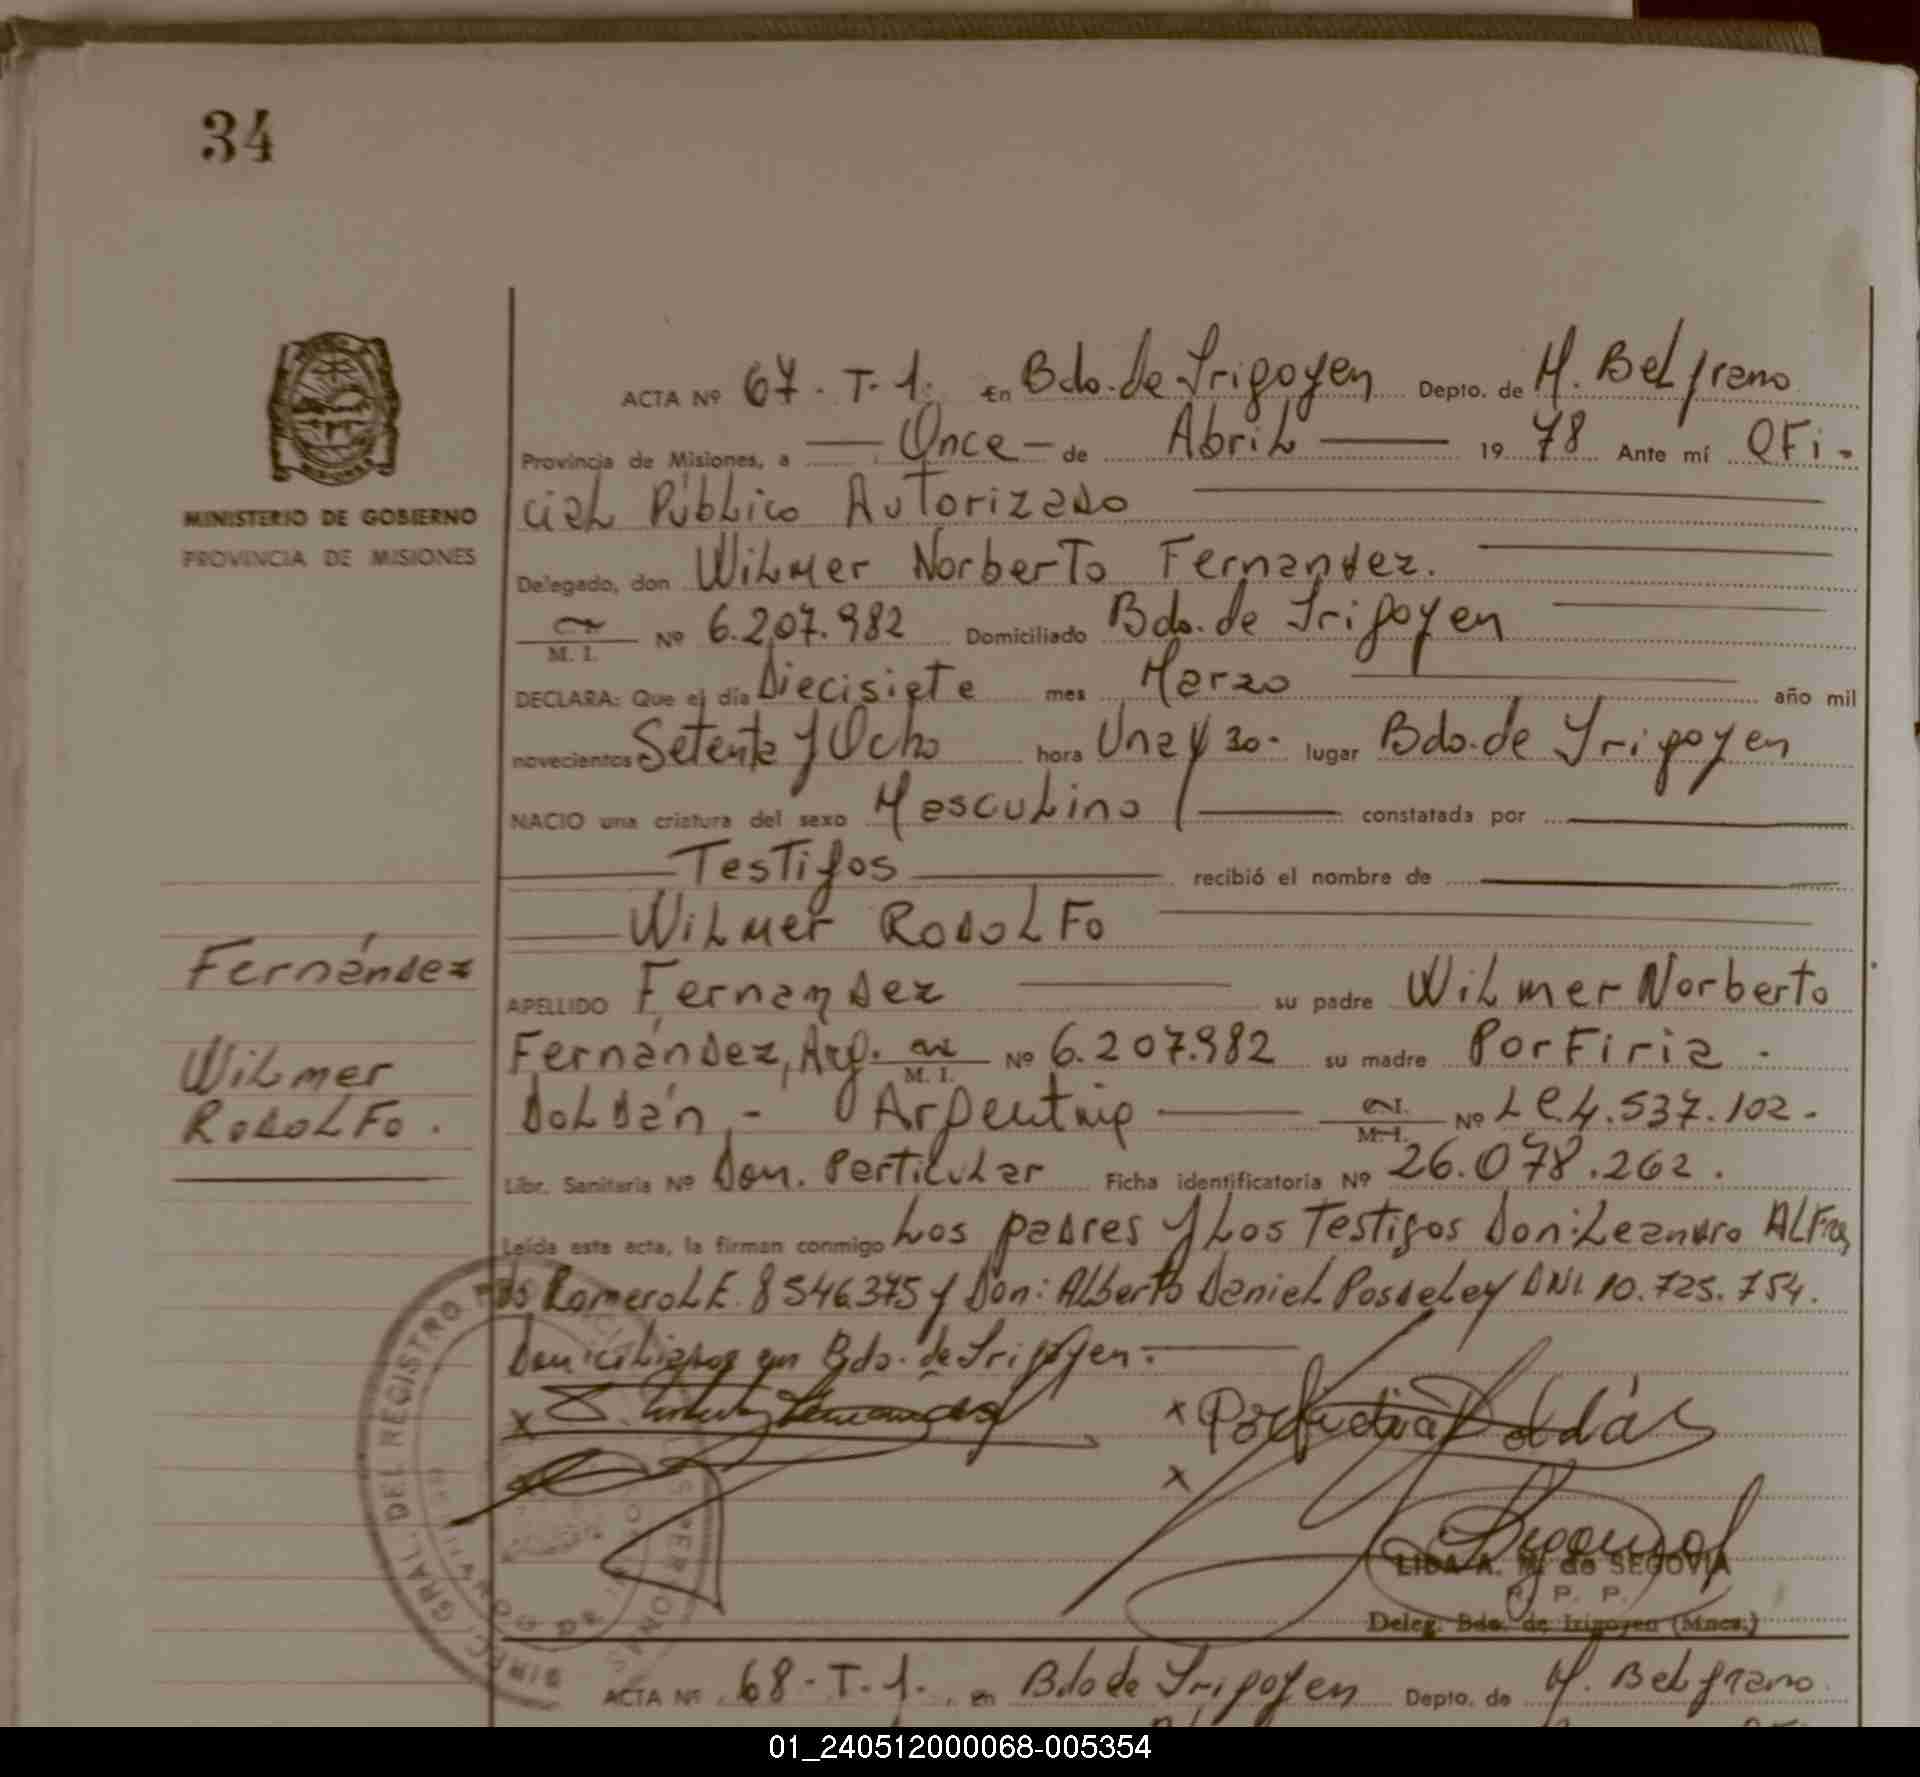 34
MINISTERIO DE GOBIERNO
PROVINCIA DE MISIONES
ACTA Nº 67 - T- 1. En Bdo. de Irigoyen Depto. de M. Belgrano
Provincia de Misiones, a Once de Abril 19 78 Ante mí Ofi-
cial Público Autorizado
Delegado, don Wilmer Norberto Fernandez.
M. I. Nº 6.207.982 Domiciliado Bdo. de Irigoyen
DECLARA: Que el día Diecisiete mes Marzo año mil
novecientos Setenta y Ocho hora Una y 30- lugar Bdo. de Irigoyen
NACIO una criatura del sexo Masculino constatada por
Testigos recibió el nombre de
Wilmer Rodolfo
Fernández
Wilmer
Rodolfo.
APELLIDO Fernandez su padre Wilmer Norberto
Fernández, Arg. M. I. Nº 6.207.982 su madre Porfiria -
Doldán - Argentina M. I. Nº LE 4.537.102-
Libr. Sanitaria Nº Dom. Particular Ficha identificatoria Nº 26.078.262.
Leída esta acta, la firman conmigo Los padres y Los Testigos Don: Leandro
Romero LE. 8546375 y Don: Alberto Daniel DNI 10.725.754.
Domiciliados en Bdo. de Irigoyen.
DIREC. GRAL. DEL REGISTRO
LIDA A. M. de SEGOVIA
R. P. P.
Deleg. Bdo. de Irigoyen (Mnes.)
ACTA Nº 68 - T- 1. en Bdo de Irigoyen Depto. de M. Belgrano
01_240512000068-005354